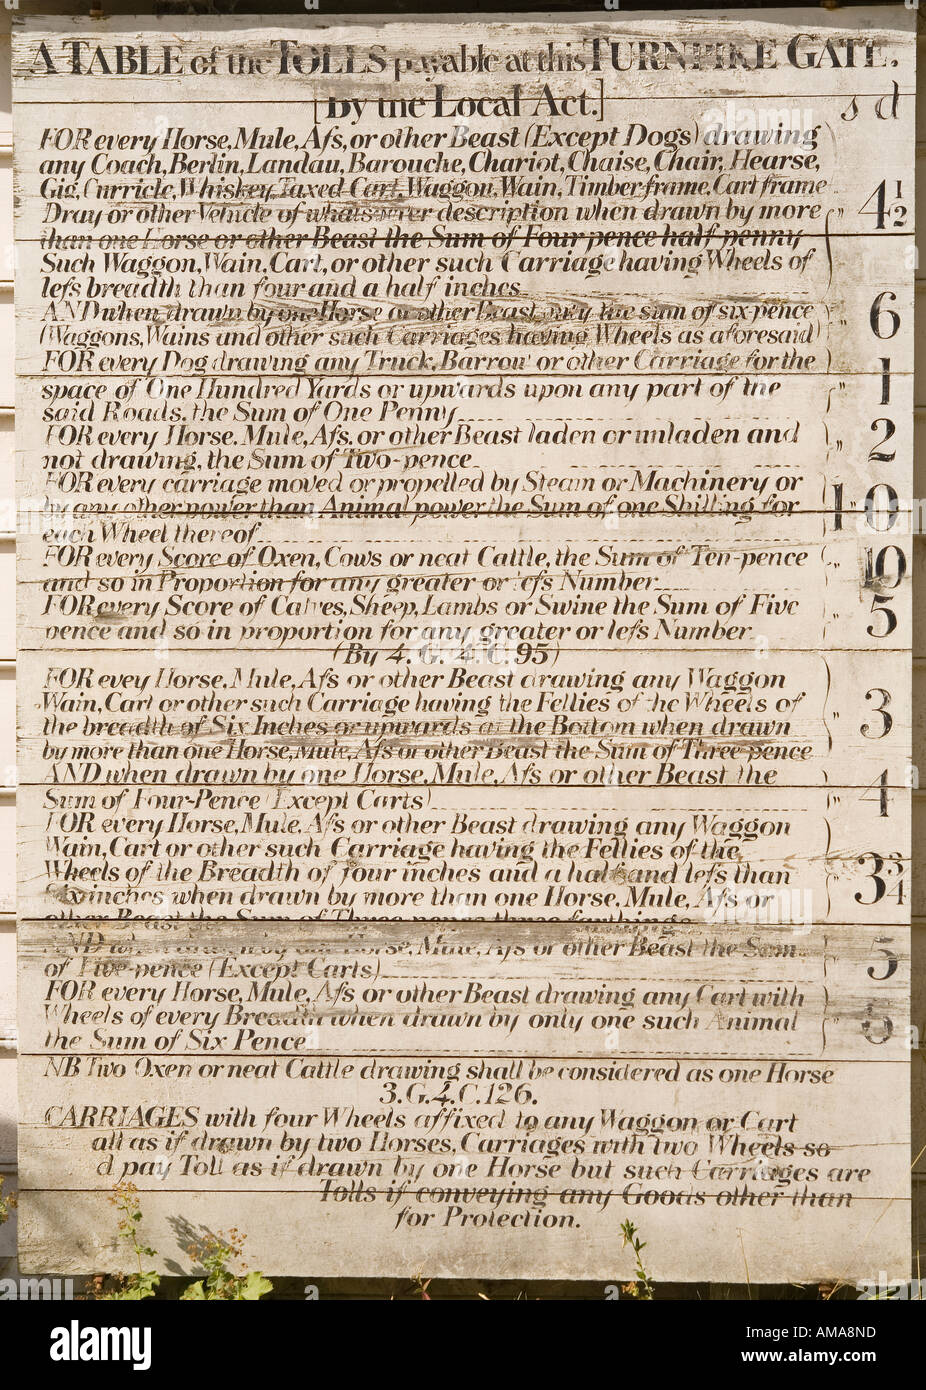 A TABLE of the TOLLS payable at this TURNPIKE GATE.
[By the Local Act.]
s d
FOR every Horse, Mule, Afs, or other Beast (Except Dogs) drawing
any Coach, Berlin, Landau, Barouche, Chariot, Chaise, Chair, Hearse,
Gig, Curricle, Whiskey, Taxed Cart, Waggon, Wain, Timber frame, Cart frame
Dray or other Vehicle of whatsoever description when drawn by more „ 4½
than one Horse or other Beast the Sum of Four pence half penny
Such Waggon, Wain, Cart, or other such Carriage having Wheels of
lefs breadth than four and a half inches
AND when drawn by one Horse or other Beast only the sum of six pence „ 6
(Waggons, Wains and other such Carriages having Wheels as aforesaid)
FOR every Dog drawing any Truck, Barrow or other Carriage for the
space of One Hundred Yards or upwards upon any part of the „ 1
said Roads, the Sum of One Penny
FOR every Horse, Mule, Afs, or other Beast laden or unladen and „ 2
not drawing, the Sum of Two-pence
FOR every carriage moved or propelled by Steam or Machinery or
by any other power than Animal power the Sum of one Shilling for 1 „ 0
each Wheel thereof
FOR every Score of Oxen, Cows or neat Cattle, the Sum of Ten-pence „ 10
and so in Proportion for any greater or lefs Number
FOR every Score of Calves, Sheep, Lambs or Swine the Sum of Five „ 5
pence and so in proportion for any greater or lefs Number
(By 4. G. 4. C. 95)
FOR evey Horse, Mule, Afs or other Beast drawing any Waggon
Wain, Cart or other such Carriage having the Fellies of the Wheels of
the breadth of Six Inches or upwards at the Bottom when drawn „ 3
by more than one Horse, Mule, Afs or other Beast the Sum of Three-pence
AND when drawn by one Horse, Mule, Afs or other Beast the
Sum of Four-Pence (Except Carts) „ 4
FOR every Horse, Mule, Afs or other Beast drawing any Waggon
Wain, Cart or other such Carriage having the Fellies of the
Wheels of the Breadth of four inches and a half and lefs than „ 3¾
Six inches when drawn by more than one Horse, Mule, Afs or
other Beast the Sum of Three pence three farthings
AND when drawn by one Horse, Mule, Afs or other Beast the Sum „ 5
of Five-pence (Except Carts)
FOR every Horse, Mule, Afs or other Beast drawing any Cart with
Wheels of every Breadth when drawn by only one such Animal „
the Sum of Six Pence
NB Two Oxen or neat Cattle drawing shall be considered as one Horse
3. G. 4. C. 126.
CARRIAGES with four Wheels affixed to any Waggon or Cart
all as if drawn by two Horses, Carriages with two Wheels so
d pay Toll as if drawn by one Horse but such Carriages are
Tolls if conveying any Goods other than
for Protection.
alamy
Image ID: AMA8ND
www.alamy.com